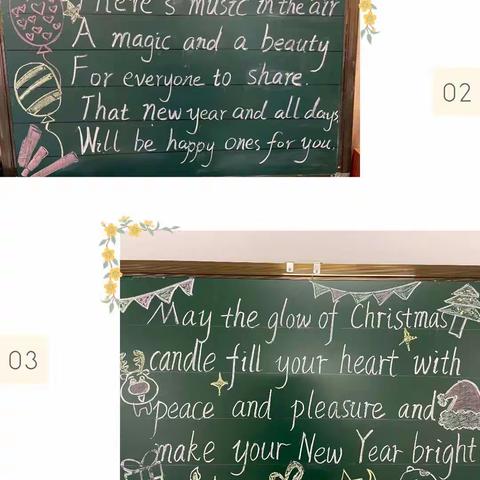 There's music in the air
A magic and a beauty
For everyone to share.
That new year and all days
Will be happy ones for you.
02
03
May the glow of Christmas
candle fill your heart with
peace and pleasure and
make your New Year bright